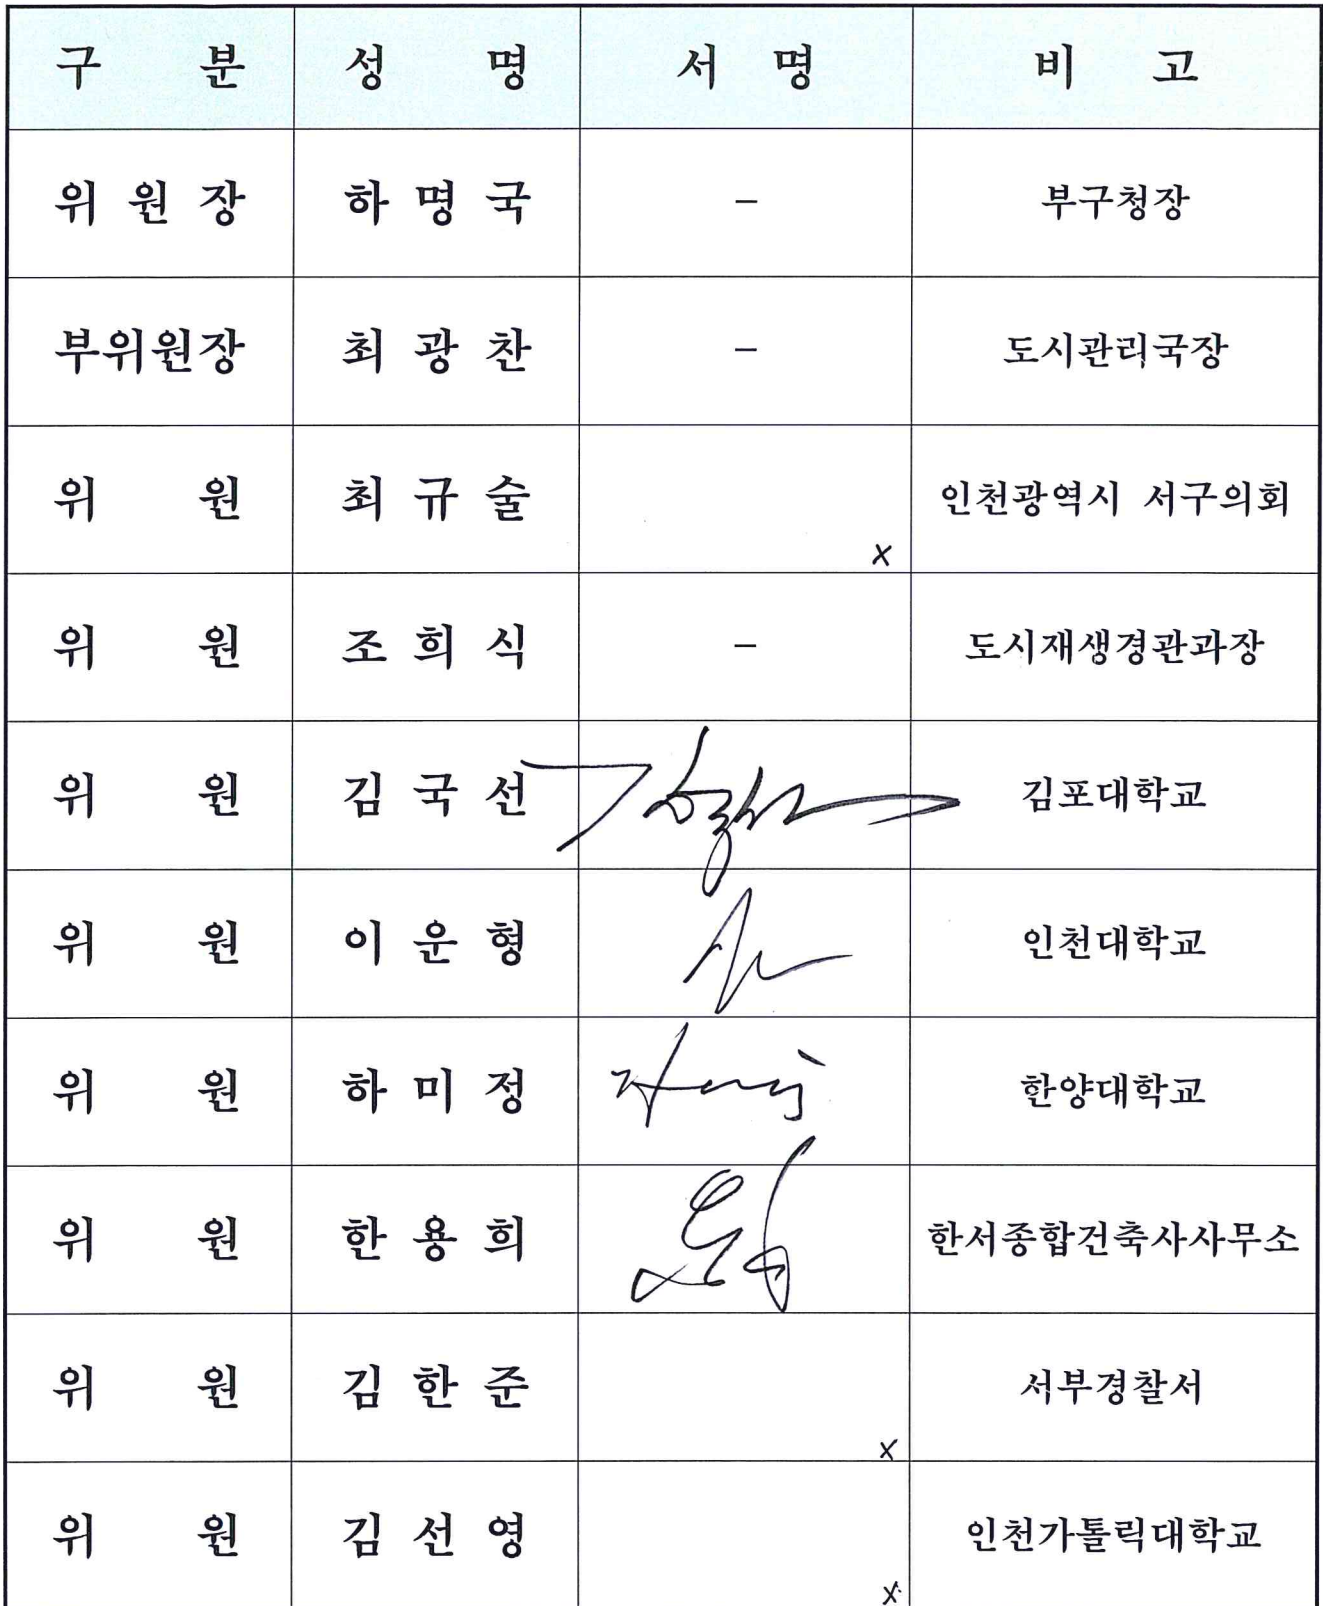 구 분 성 명 서 명 비 고
위 원 장 하 명 국 － 부구청장
부위원장 최 광 찬 － 도시관리국장
위 원 최 규 술 x 인천광역시 서구의회
위 원 조 희 식 － 도시재생경관과장
위 원 김 국 선 김포대학교
위 원 이 운 형 인천대학교
위 원 하 미 정 한양대학교
위 원 한 용 희 한서종합건축사사무소
위 원 김 한 준 x 서부경찰서
위 원 김 선 영 x 인천가톨릭대학교